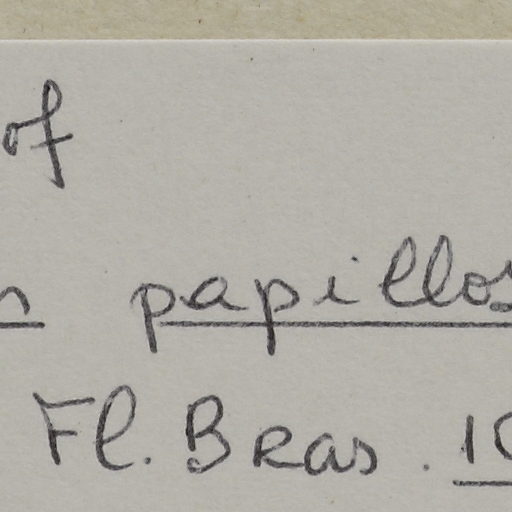 of
papillos
Fl. Bras. 10